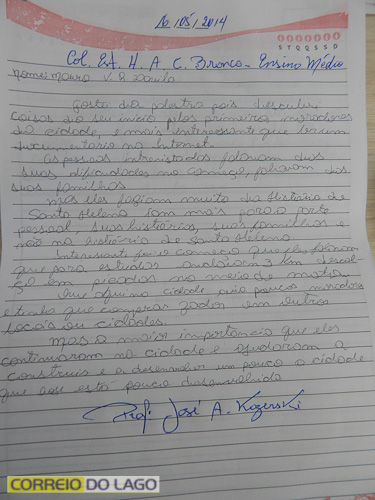 16/05/2014
S T Q Q S S D
Col. Est. H. A. C. Branco - Ensino Médio
Nome: Mauro V. R.
Gosto da palestra pois descubri
Coisas do seu início pelos primeiros moradores
da cidade, e mais interessante que tem um
documentario na Internet.
As pessoas intrevistadas falavam das
suas dificuldades no começo, falavam das
suas familhas.
Mas eles fogiam muito da História de
Santa Helena iam mais para a parte
pessoal, suas histórias, suas familhas e
não na história de Santa Helena
Interessante foi o começo que eles falavam
que para estudar andavam 3 km descal-
ço em picadas no meio do mato.
Que aqui na cidade tinha poucos mercados
e tinha que comprar em outros
locais ou cidades.
Mas o maior importancia que eles
continuaram na cidade e ajudaram a
construir e a desenvolver um pouco a cidade
que esta pouco desenvolvida
Prof: José A. Kozerski
CORREIO DO LAGO